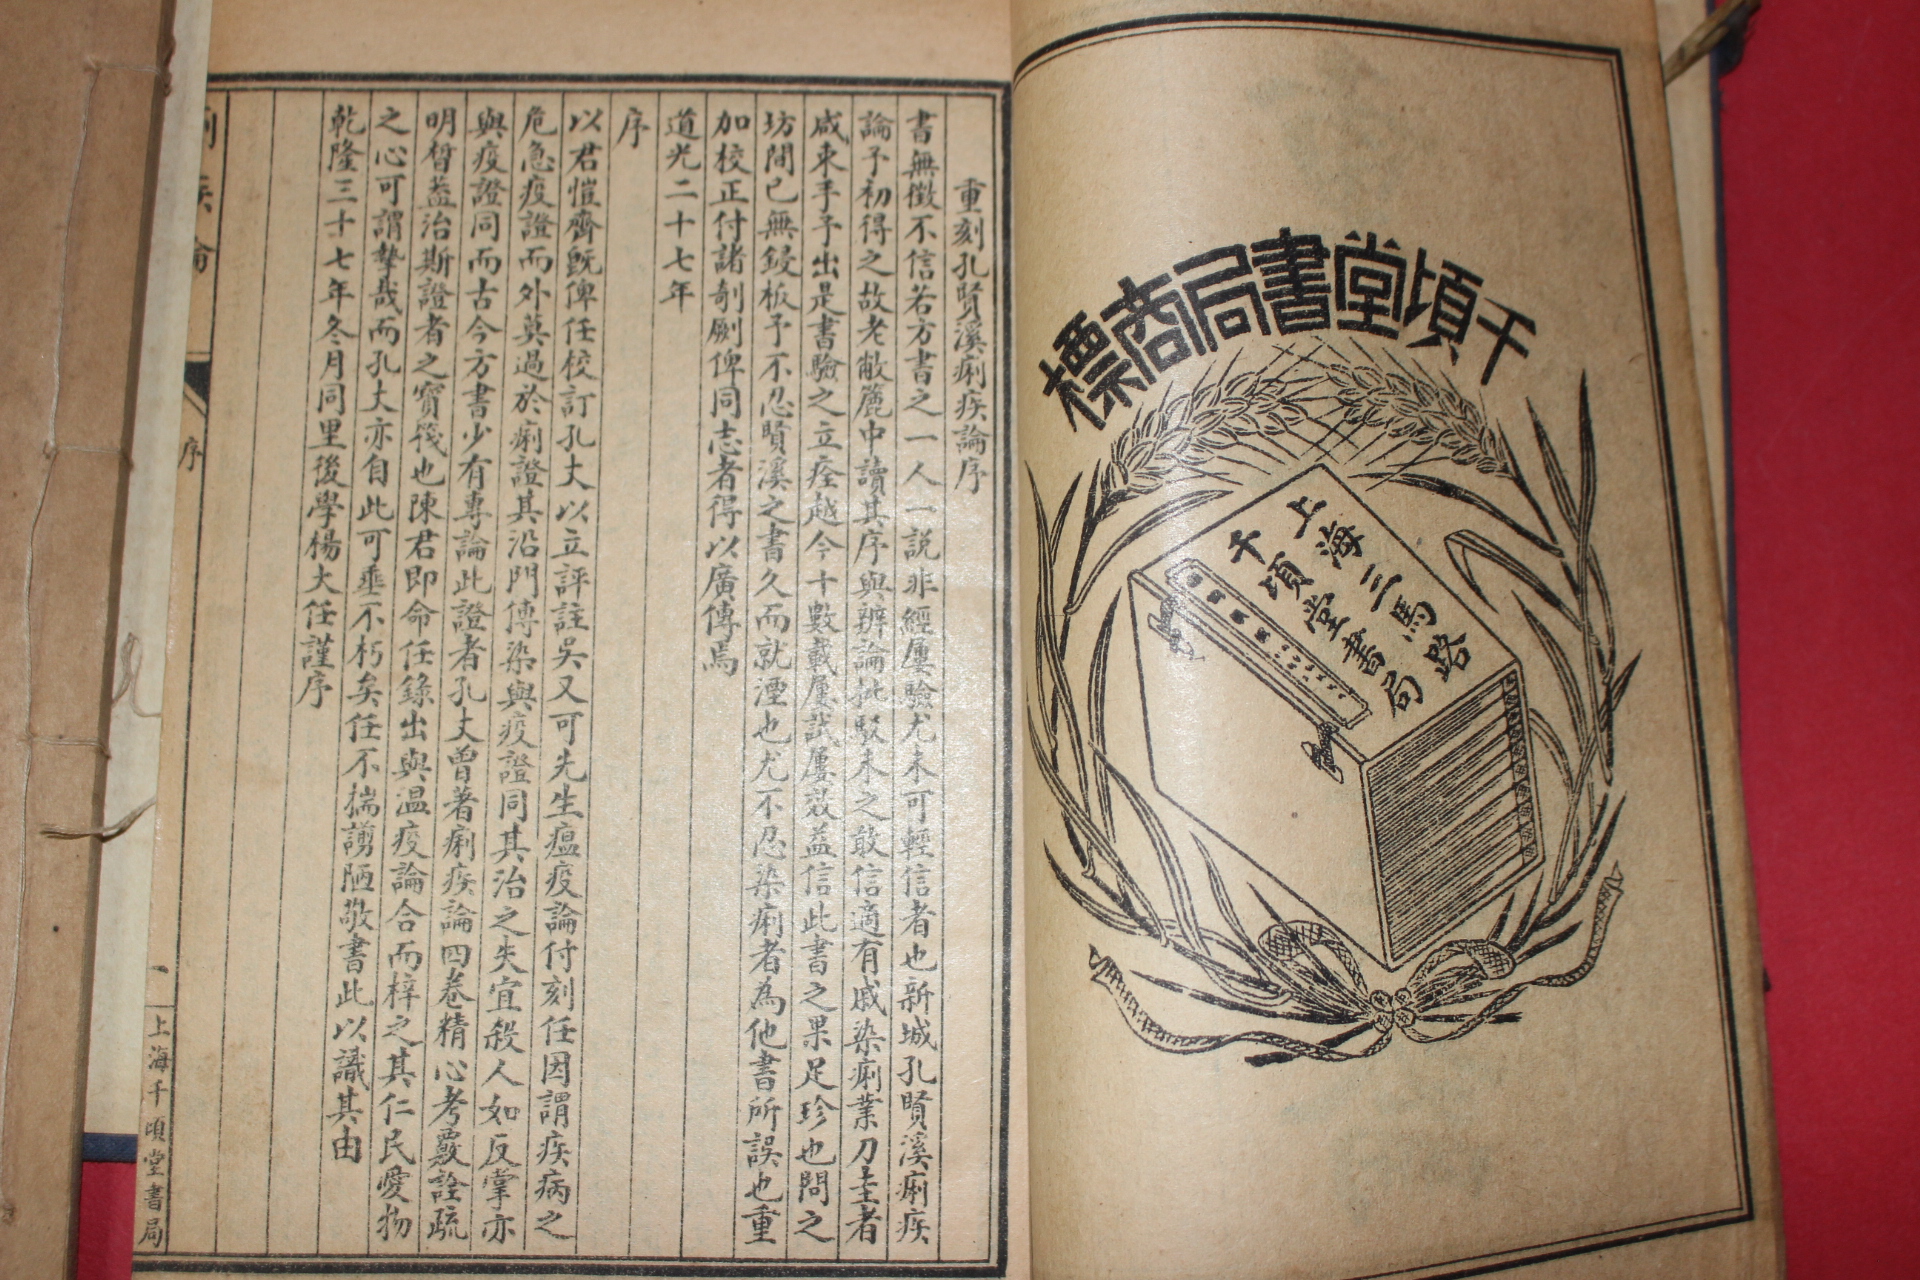 千頃堂書局商標
上海三馬路
千頃堂書局
重刻孔賢溪痢疾論序
書無徵不信若方書之一人一説非經屢驗尤未可輕信者也新城孔賢溪痢疾
論予初得之故老敝簏中讀其序與辨論批駁未之敢信適有戚染痢業刀圭者
咸束手予出是書驗之立痊越今十數載屢試屢效益信此書之果足珍也問之
坊間已無鋟板予不忍賢溪之書久而就湮也尤不忍染痢者為他書所誤也重
加校正付諸剞劂俾同志者得以廣傳焉
道光二十七年
序
以君愷齊既俾任校訂孔大以立評註吳又可先生瘟疫論付刻任因謂疾病之
危急疫證而外莫過於痢證其沿門傳染與疫證同其治之失宜殺人如反掌亦
與疫證同而古今方書少有專論此證者孔大曾著痢疾論四卷精心考覈詮疏
明晳蓋治斯證者之寶筏也陳君即命任錄出與溫疫論合而梓之其仁民愛物
之心可謂摯哉而孔大亦自此可垂不朽矣任不揣謭陋敬書此以識其由
乾隆三十七年冬月同里後學楊大任謹序
序
一
上海千頃堂書局